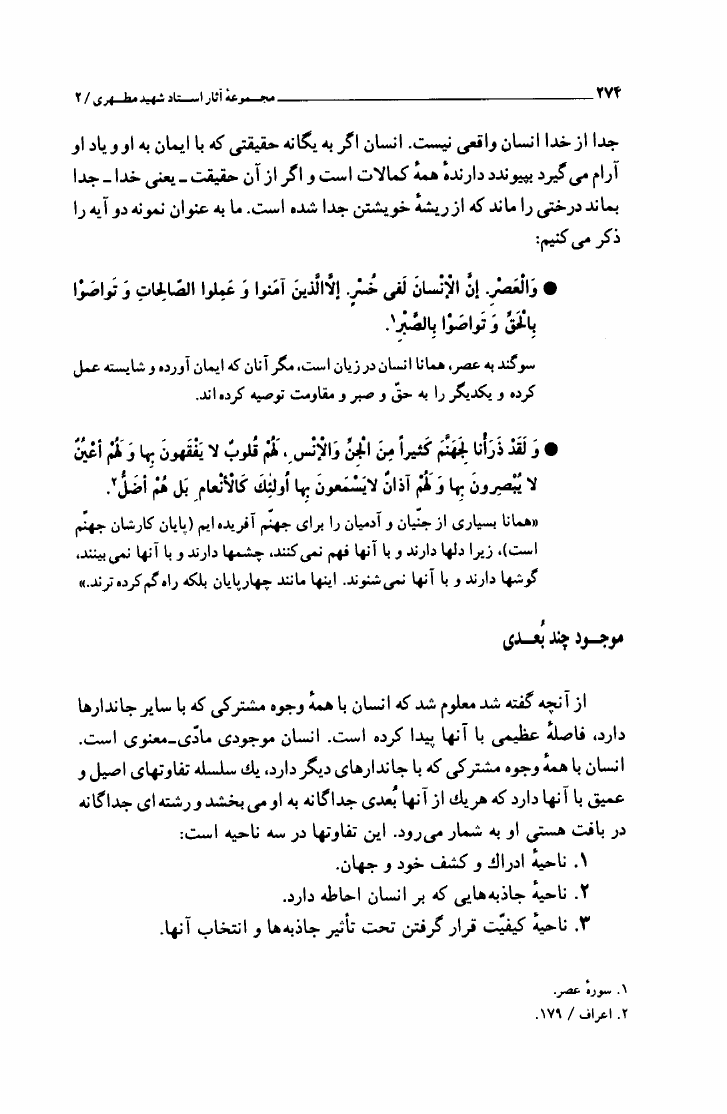 ۲۷۴ مجموعهٔ آثار استاد شهید مطهری / ۲
جدا از خدا انسان واقعی نیست. انسان اگر به یگانه حقیقتی که با ایمان به او و یاد او
آرام می‌گیرد بپیوندد دارندهٔ همهٔ کمالات است و اگر از آن حقیقت ـ یعنی خدا ـ جدا
بماند درختی را ماند که از ریشهٔ خویشتن جدا شده است. ما به عنوان نمونه دو آیه را
ذکر می‌کنیم:
● وَالْعَصْرِ. إنَّ الْإنْسانَ لَفی خُسْرٍ. إلاَّ الَّذینَ آمَنوا وَ عَمِلوا الصّالِحاتِ وَ تَواصَوْا
بِالْحَقِّ وَ تَواصَوْا بِالصَّبْرِ۱.
سوگند به عصر، همانا انسان در زیان است، مگر آنان که ایمان آورده و شایسته عمل
کرده و یکدیگر را به حقّ و صبر و مقاومت توصیه کرده‌اند.
● وَ لَقَدْ ذَرَأْنا لِجَهَنَّمَ کَثیراً مِنَ الْجِنِّ وَالْإنْسِ، لَهُمْ قُلوبٌ لا یَفْقَهونَ بِها وَ لَهُمْ أعْیُنٌ
لا یُبْصِرونَ بِها وَ لَهُمْ آذانٌ لایَسْمَعونَ بِها أولئِكَ کَالْأنْعامِ بَل هُمْ أضَلُّ۲.
«همانا بسیاری از جنّیان و آدمیان را برای جهنّم آفریده‌ایم (پایان کارشان جهنّم
است)، زیرا دلها دارند و با آنها فهم نمی‌کنند، چشمها دارند و با آنها نمی‌بینند،
گوشها دارند و با آنها نمی‌شنوند. اینها مانند چهارپایان بلکه راه گم‌کرده‌ترند.»
موجود چند بُعدی
از آنچه گفته شد معلوم شد که انسان با همهٔ وجوه مشترکی که با سایر جاندارها
دارد، فاصلهٔ عظیمی با آنها پیدا کرده است. انسان موجودی مادّی-معنوی است.
انسان با همهٔ وجوه مشترکی که با جاندارهای دیگر دارد، یك سلسله تفاوتهای اصیل و
عمیق با آنها دارد که هر یك از آنها بُعدی جداگانه به او می‌بخشد و رشته‌ای جداگانه
در بافت هستی او به شمار می‌رود. این تفاوتها در سه ناحیه است:
۱. ناحیهٔ ادراك و کشف خود و جهان.
۲. ناحیهٔ جاذبه‌هایی که بر انسان احاطه دارد.
۳. ناحیهٔ کیفیّت قرار گرفتن تحت تأثیر جاذبه‌ها و انتخاب آنها.
۱. سورهٔ عصر.
۲. اعراف / ۱۷۹.